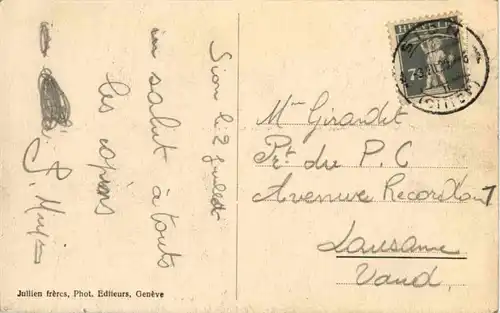 Sion le 2 juillet
un salut à touts
les copins
Mr Girardet
Pt. du P. C
Avenue Recordon 7
Lausanne
Vaud.
HELVETIA
7½
Jullien frères, Phot. Editeurs, Genève